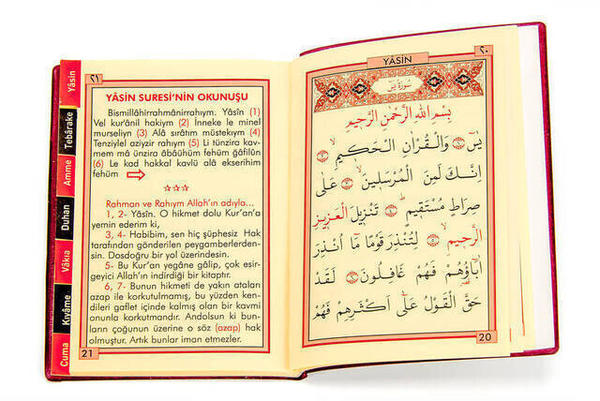 Yâsin
Tebârake
Amme
Duhan
Vâkıa
Kıyâme
Cuma
٢١
YÂSİN SURESİ'NİN OKUNUŞU
Bismillâhirrahmânirrahıym. Yâsîn (1)
Vel kur'ânil hakiym (2) İnneke le minel
murseliyn (3) Alâ sırâtım müstekıym (4)
Tenziylel aziyzir rahıym (5) Li tünzira kav-
mem mâ ünzira âbâühüm fehüm ğâfilûn
(6) Le kad hakkal kavlü alâ ekserihim
fehüm
☆☆☆
Rahman ve Rahıym Allah'ın adıyla...
1, 2- Yâsîn. O hikmet dolu Kur'an'a
yemin ederim ki,
3, 4- Habibim, sen hiç şüphesiz Hak
tarafından gönderilen peygamberlerden-
sin. Dosdoğru bir yol üzerindesin.
5- Bu Kur'an yegâne galip, çok esir-
geyici Allah'ın indirdiği bir kitaptır.
6, 7- Bunun hikmeti de yakın ataları
azap ile korkutulmamış, bu yüzden ken-
dileri gaflet içinde kalmış olan bir kavmi
onunla korkutmandır. Andolsun ki bun-
ların çoğunun üzerine o söz (azap) hak
olmuştur. Artık bunlar iman etmezler.
21
٢٠
YÂSİN
سُورَةُ يٰسٓ
بِسْمِ اللّٰهِ الرَّحْمٰنِ الرَّحِيمِ
يٰسٓ ﴿١﴾ وَالْقُرْاٰنِ الْحَكِيمِ ﴿٢﴾
اِنَّكَ لَمِنَ الْمُرْسَلِينَ ﴿٣﴾ عَلٰى
صِرَاطٍ مُسْتَقِيمٍ ﴿٤﴾ تَنْزِيلَ الْعَزِيزِ
الرَّحِيمِ ﴿٥﴾ لِتُنْذِرَ قَوْمًا مَا اُنْذِرَ
اٰبَاؤُهُمْ فَهُمْ غَافِلُونَ ﴿٦﴾ لَقَدْ
حَقَّ الْقَوْلُ عَلٰى اَكْثَرِهِمْ فَهُمْ
20